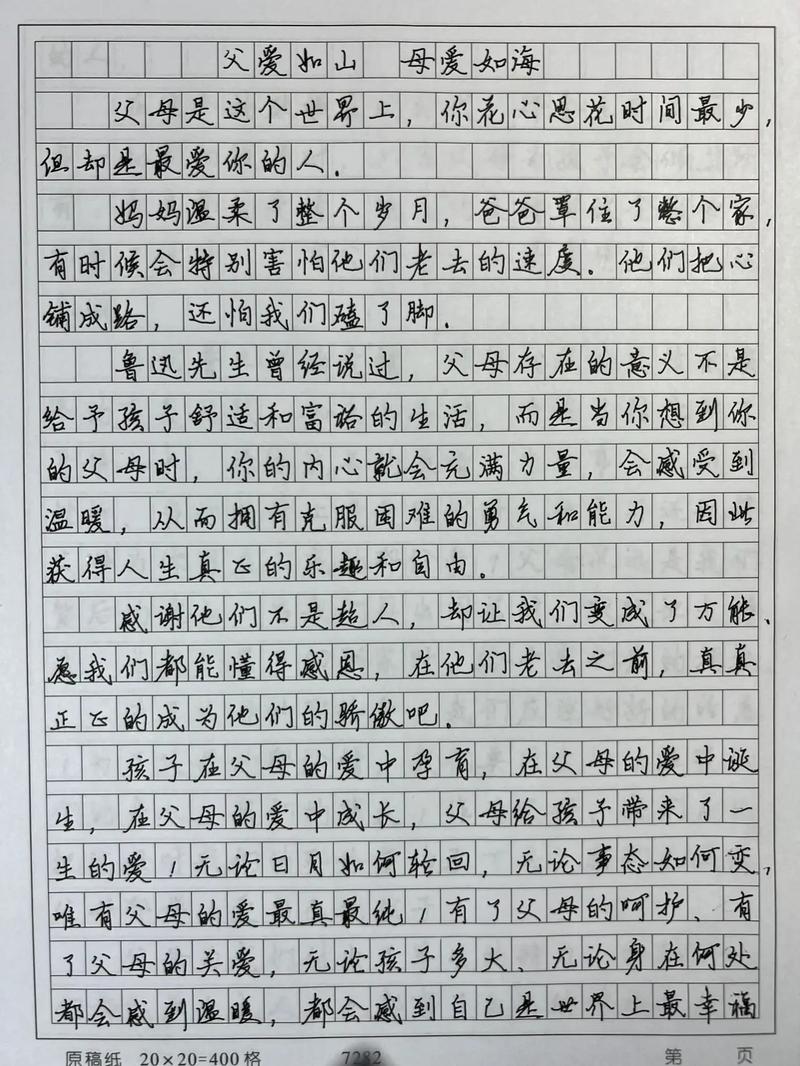 父爱如山 母爱如海
父母是这个世界上，你花心思花时间最少，
但却是最爱你的人．
妈妈温柔了整个岁月，爸爸罩住了整个家，
有时候会特别害怕他们老去的速度．他们把心
铺成路，还怕我们磕了脚．
鲁迅先生曾经说过，父母存在的意义不是
给予孩子舒适和富裕的生活，而是当你想到你
的父母时，你的内心就会充满力量，会感受到
温暖，从而拥有克服困难的勇气和能力，因此
获得人生真正的乐趣和自由。
感谢他们不是超人，却让我们变成了万能、
愿我们都能懂得感恩，在他们老去之前，真真
正正的成为他们的骄傲吧．
孩子在父母的爱中孕育，在父母的爱中诞
生，在父母的爱中成长，父母给孩子带来了一
生的爱！无论日月如何轮回，无论事态如何变，
唯有父母的爱最真最纯！有了父母的呵护、有
了父母的关爱，无论孩子多大、无论身在何处
都会感到温暖，都会感到自己是世界上最幸福
原稿纸 20×20=400格 7282 第 页